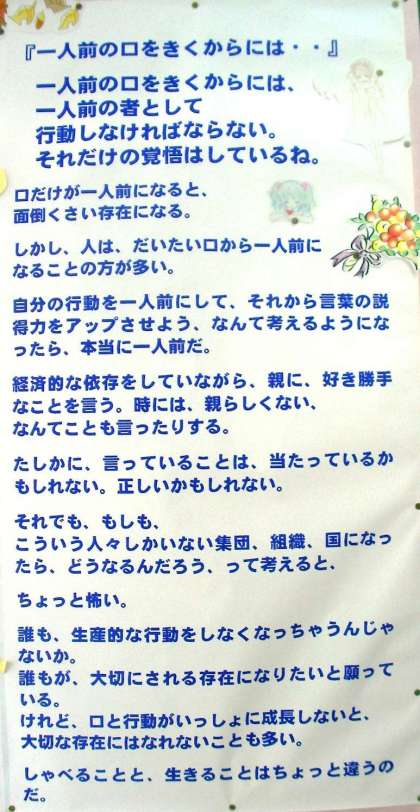 『一人前の口をきくからには・・』
一人前の口をきくからには、
一人前の者として
行動しなければならない。
それだけの覚悟はしているね。
口だけが一人前になると、
面倒くさい存在になる。
しかし、人は、だいたい口から一人前に
なることの方が多い。
自分の行動を一人前にして、それから言葉の説
得力をアップさせよう、なんて考えるようにな
ったら、本当に一人前だ。
経済的な依存をしていながら、親に、好き勝手
なことを言う。時には、親らしくない、
なんてことも言ったりする。
たしかに、言っていることは、当たっているか
もしれない。正しいかもしれない。
それでも、もしも、
こういう人々しかいない集団、組織、国になっ
たら、どうなるんだろう、って考えると、
ちょっと怖い。
誰も、生産的な行動をしなくなっちゃうんじゃ
ないか。
誰もが、大切にされる存在になりたいと願って
いる。
けれど、口と行動がいっしょに成長しないと、
大切な存在にはなれないことも多い。
しゃべることと、生きることはちょっと違うの
だ。